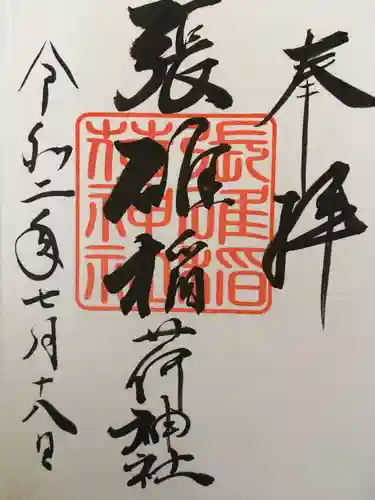 奉拝
張碓稲荷神社
張碓稲
荷神社
令和二年七月十八日